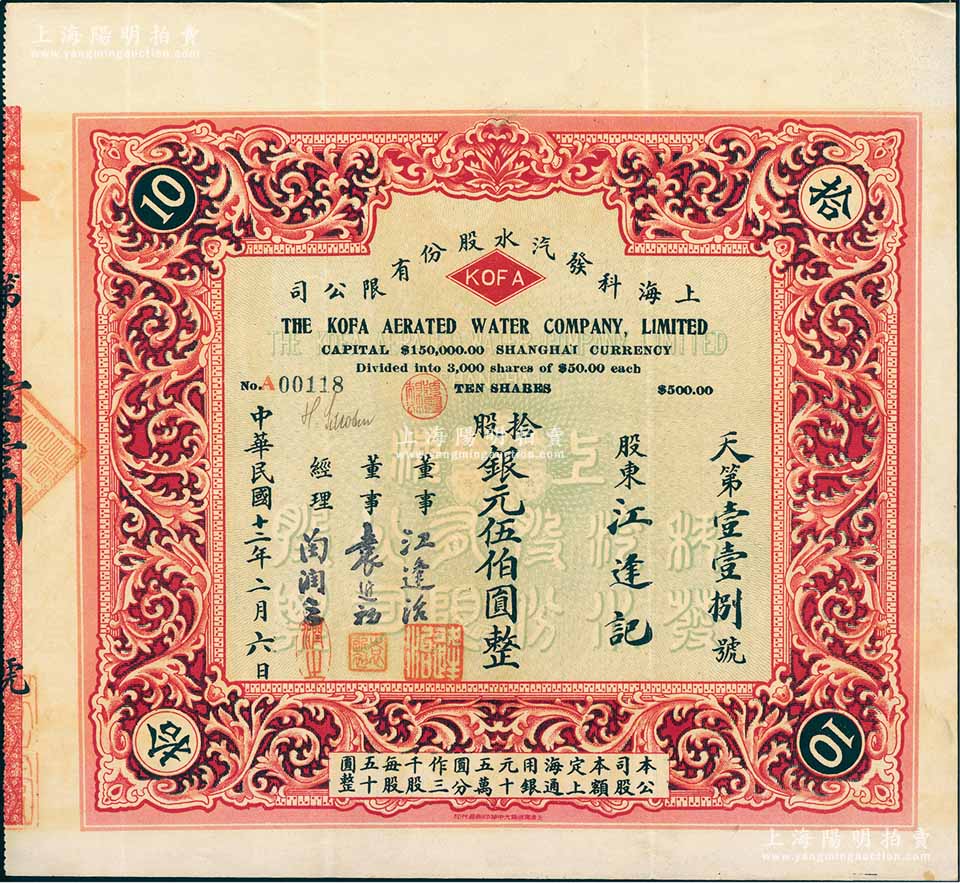 上海陽明拍賣
www.yangmingauction.com
10
拾
上海科發汽水股份有限公司
KOFA
THE KOFA AERATED WATER COMPANY, LIMITED
CAPITAL $150,000.00 SHANGHAI CURRENCY
Divided into 3,000 shares of $50.00 each
No. A00118
TEN SHARES
$500.00
天第壹壹捌號
股東江逢記
拾股銀元伍伯圓整
董事江逢治
董事袁近初
經理
中華民國十二年二月六日
上海陽明拍賣
www.yangmingauction.com
拾
10
本公司股本額定上海通用銀元十五萬圓分作三千股每股五十五圓整
上海陽明拍賣
www.yangmingauction.com